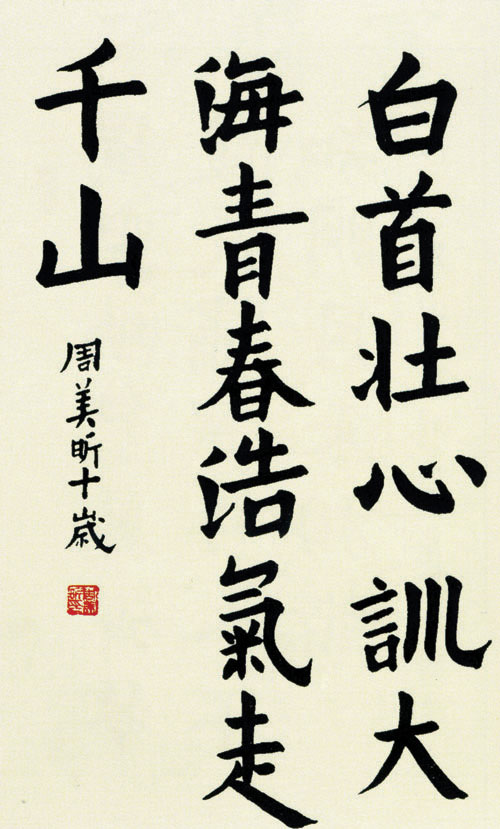 白首壯心訓大
海青春浩氣走
千山
周美昕十歲